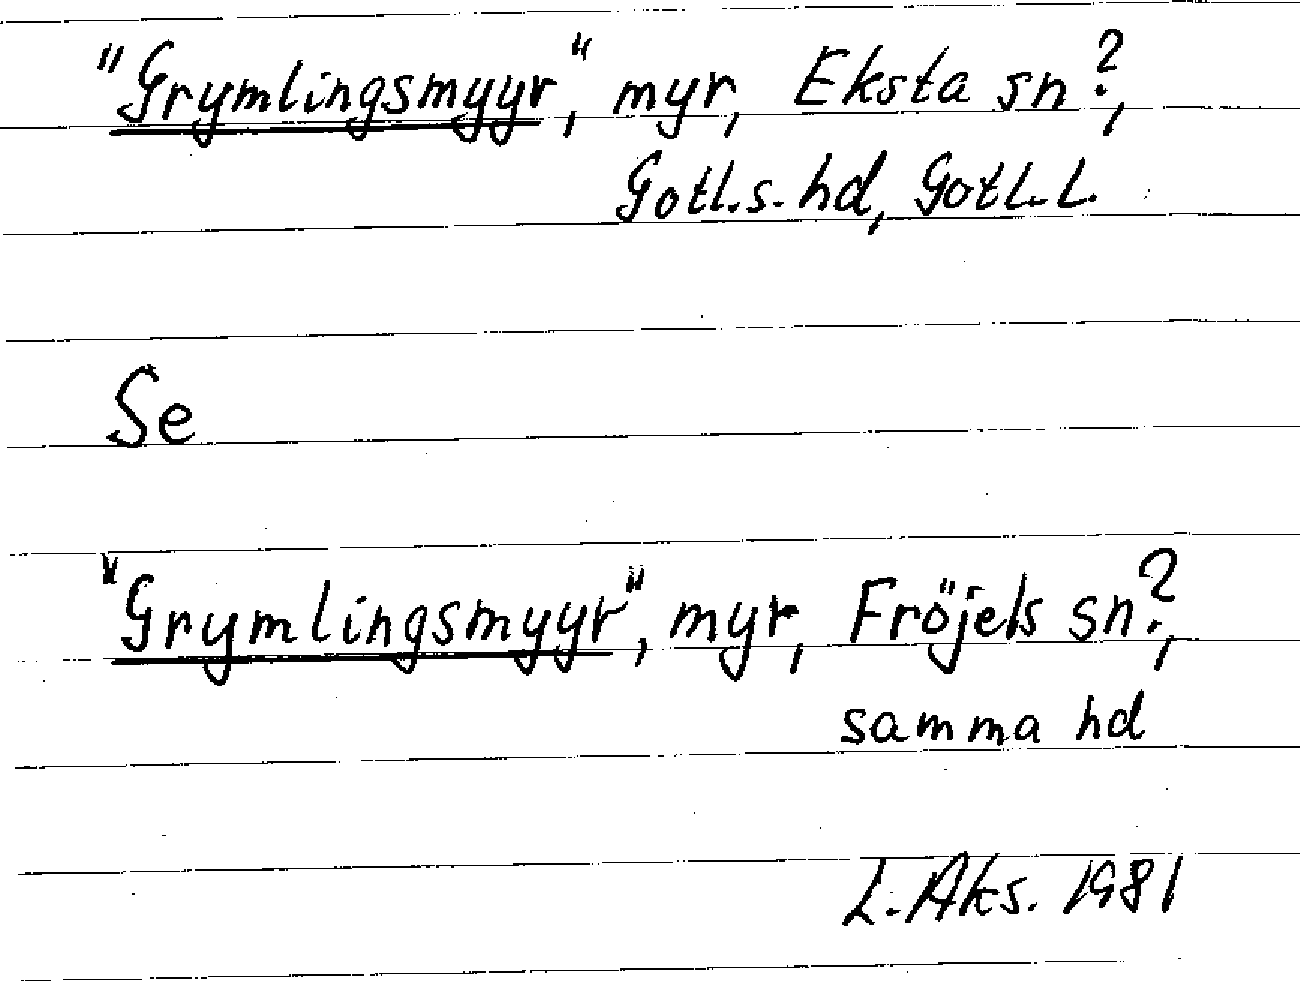 "Grymlingsmyyr", myr, Eksta sn?,
Gotl.s. hd, Gotl.L.
Se
"Grymlingsmyyr", myr, Fröjels sn?,
samma hd
L. Aks. 1981